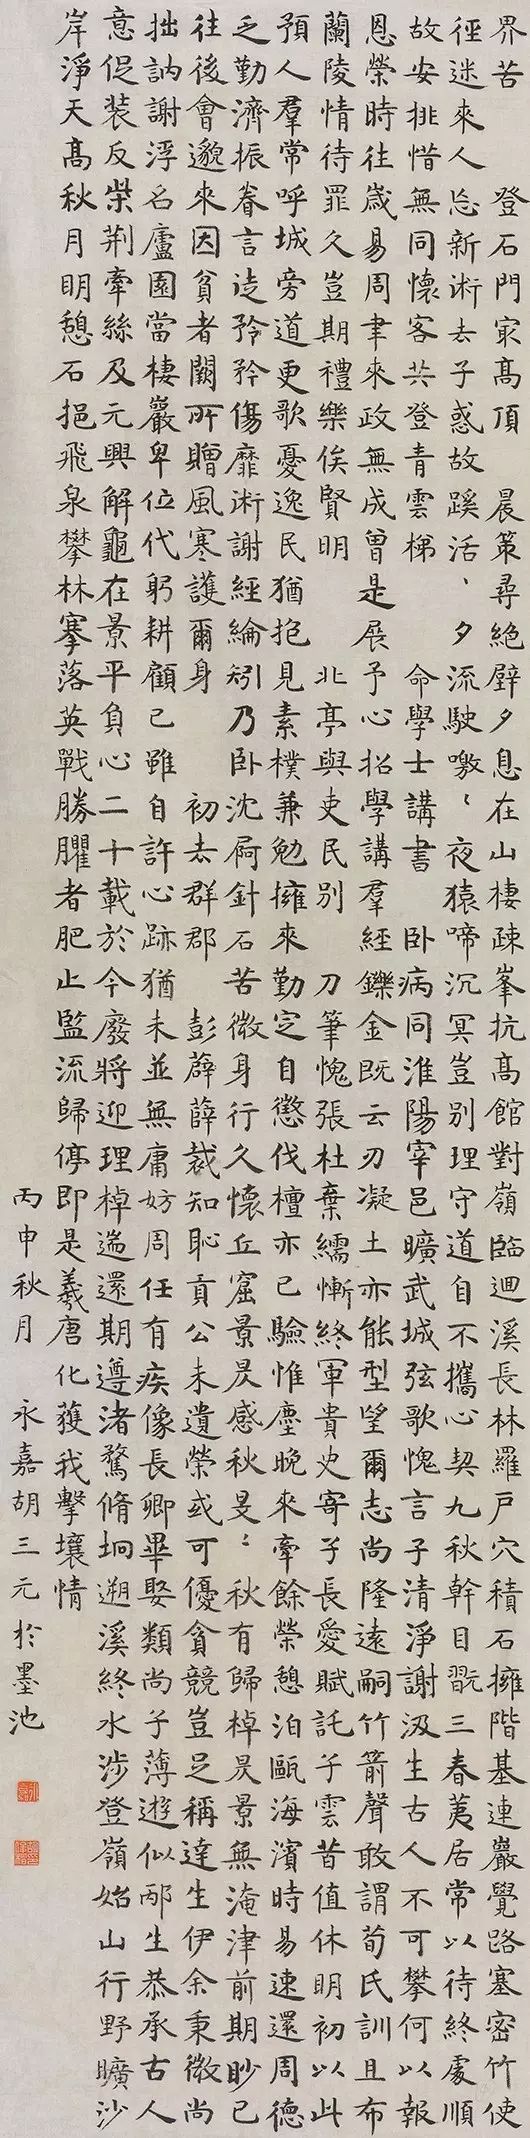 界苦 登石門冣高頂 晨策尋絕壁夕息在山棲疎峯抗高館對嶺臨迴溪長林羅戶穴積石擁階基連巖覺路塞密竹使
徑迷來人忘新術去子惑故蹊活、夕流駛噭、夜猿啼沉冥豈別理守道自不攜心契九秋幹目翫三春荑居常以待終處順
故安排惜無同懷客共登青雲梯 命學士講書 臥病同淮陽宰邑曠武城弦歌愧言子清淨謝汲生古人不可攀何以報
恩榮時往歲易周聿來政無成曾是展予心招學講羣經鑠金既云刃凝土亦能型望爾志尚隆遠嗣竹箭聲敢謂荀氏訓且布
蘭陵情待罪久豈期禮樂俟賢明 北亭與吏民別 刀筆愧張杜棄繻慚終軍貴史寄子長愛賦託子雲昔值休明初以此
預人羣常呼城旁道更歌憂逸民猶抱見素樸兼勉擁來勤定自懲伐檀亦已驗惟塵晚來牽餘榮憩泊甌海濱時易速還周德
乏勤濟振眷言矜矜傷靡術謝經綸矧乃臥沈痾針石苦微身行久懷丘窟景昃感秋旻、秋有歸棹昃景無淹津前期眇已
往後會邈來因貧者闕所贈風寒護爾身 初去群郡 彭薜薛裁知恥貢公未遺榮或可優貪競豈足稱達生伊余秉微尚
拙訥謝浮名廬園當棲巖卑位代躬耕顧己雖自許心跡猶未並無庸妨周任有疾像長卿畢娶類尚子薄遊似邴生恭承古人
意促装反柴荊牽絲及元興解龜在景平負心二十載於今廢將迎理棹遄還期遵渚騖脩坰遡溪終水涉登嶺始山行野曠沙
岸淨天高秋月明憩石挹飛泉攀林搴落英戰勝臞者肥止監流歸停即是羲唐化獲我擊壤情
丙申秋月 永嘉胡三元於墨池